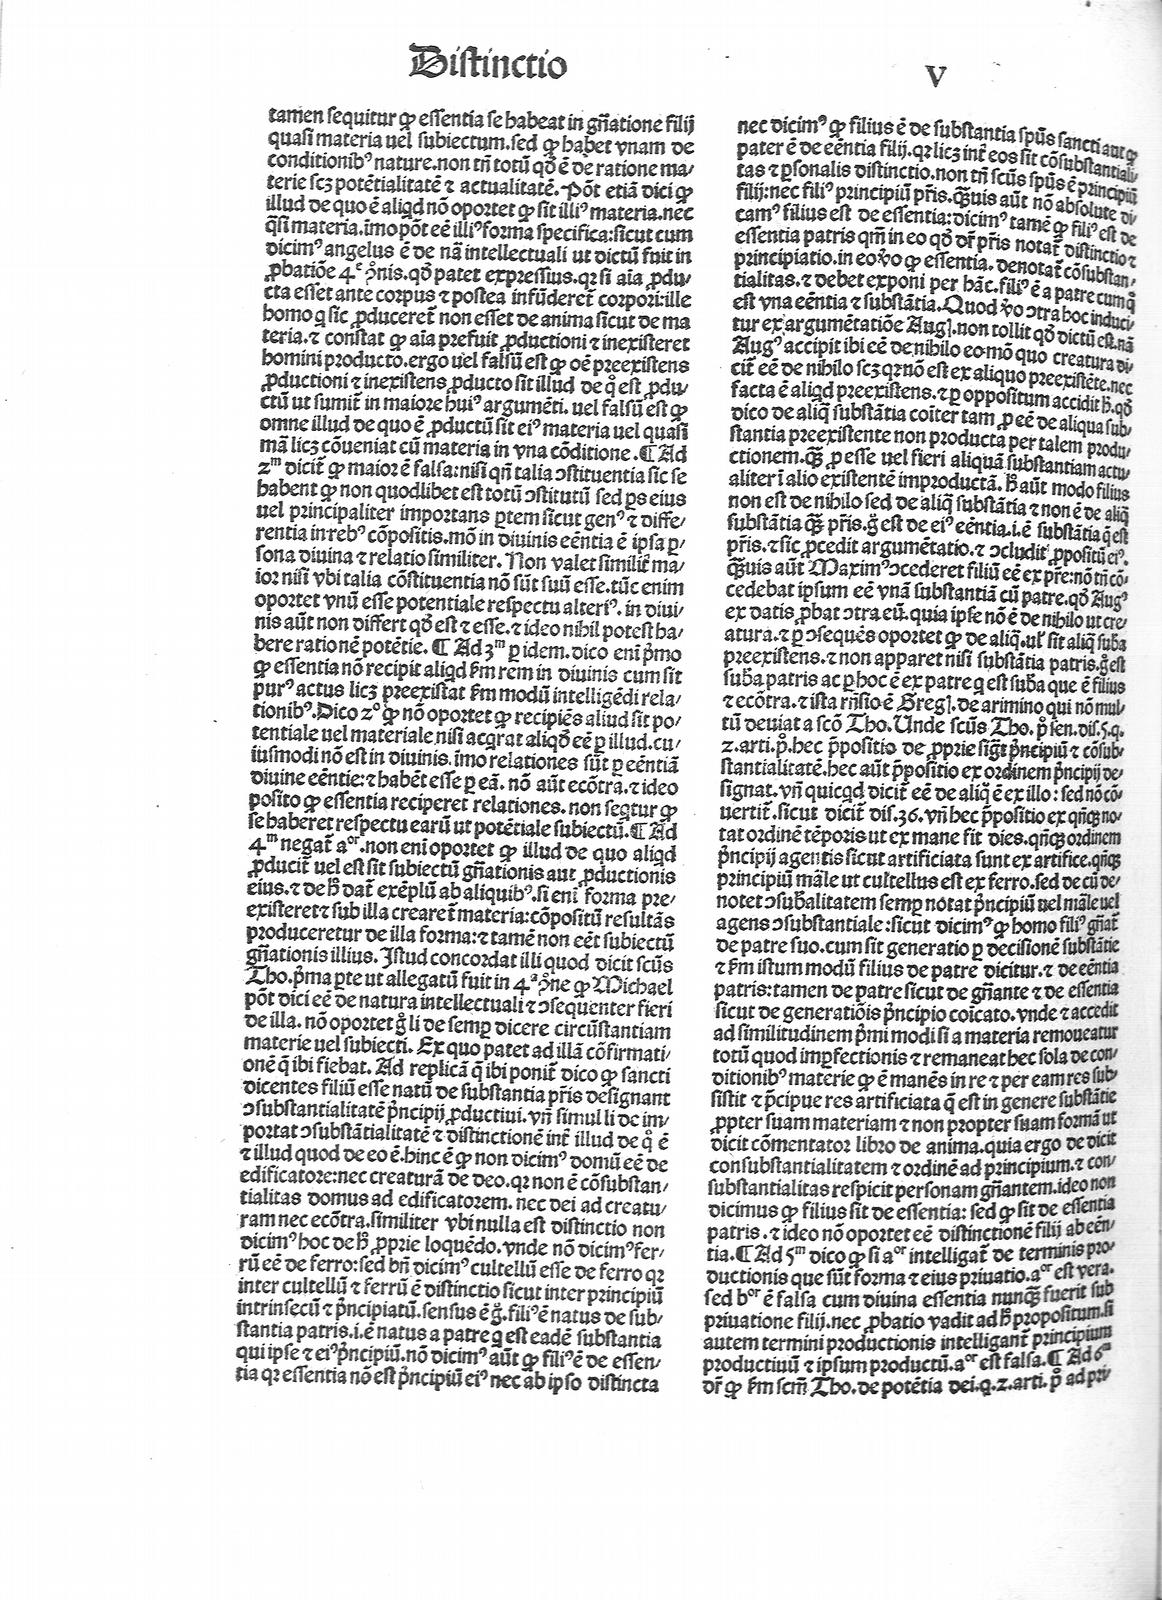 Distinctio
V
tamen sequitur ꝙ essentia se habeat in gñatione filij
quasi materia uel subiectum.sed ꝙ habet vnam de
conditionibꝰ nature.non tñ totũ qđ ẽ de ratione ma/
terie scꝫ potẽtialitatẽ ⁊ actualitatẽ.Põt etiã dici ꝙ
illud de quo ẽ aliqd nõ oportet ꝙ sit illiꝰ materia.nec
q̃si materia.imo põt eẽ illiꝰ forma specifica:sicut cum
dicimꝰ angelus ẽ de nã intellectuali ut dictũ fuit in
ꝓbatiõe 4ᵉ ↄ̊nis.qđ patet expressius.qꝛ si aĩa ꝓdu/
cta esset ante corpus ⁊ postea infũderet̃ corpori:ille
homo q sic ꝓduceret̃ non esset de anima sicut de ma
teria.⁊ constat ꝙ aĩa prefuit ꝓductioni ⁊ inexisteret
homini producto.ergo uel falsũ est ꝙ oẽ preexistens
ꝓductioni ⁊ inexistens ꝓducto sit illud de q̊ est ꝓdu/
ctũ ut sumit̃ in maiore huiꝰ argumẽti. uel falsũ est ꝙ
omne illud de quo ẽ ꝓductũ sit eiꝰ materia uel quasi
mã licꝫ cõueniat cũ materia in vna cõditione.¶ Ad
2ᵐ dicit̃ ꝙ maior ẽ falsa:nisi qñ talia ↄstituentia sic se
habent ꝙ non quodlibet est totũ ↄstitutũ sed ps eius
uel principaliter importans ꝑtem sicut genꝰ ⁊ diffe/
rentia in rebꝰ cõpositis.mõ in diuinis eẽntia ẽ ipsa ꝑ/
sona diuina ⁊ relatio similiter. Non valet similit̃ ma/
ior nisi vbi talia cõstituentia nõ sũt suũ esse.tũc enim
oportet vnũ esse potentiale respectu alteriꝰ. in diui/
nis aũt non differt qđ est ⁊ esse.⁊ ideo nihil potest ha/
bere rationẽ potẽtie. ¶ Ad 3ᵐ ꝑ idem.dico eni p̃mo
ꝙ essentia nõ recipit aliqd s̃m rem in diuinis cum sit
purꝰ actus licꝫ preexistat s̃m modũ intelligẽdi rela/
tionibꝰ.Dico 2° ꝙ nõ oportet ꝙ recipiẽs aliud sit po/
tentiale uel materiale,nisi acqrat aliqđ eẽ ꝑ illud.cu/
iusmodi nõ est in diuinis. imo relationes sũt ꝑ eẽntiã
diuine eẽntie:⁊ habẽt esse ꝑ eã. nõ aũt ecõtra.⁊ ideo
posito ꝙ essentia reciperet relationes. non seqtur ꝙ
se haberet respectu earũ ut potẽtiale subiectũ.¶ Ad
4ᵐ negat̃ aᵒʳ.non eni oportet ꝙ illud de quo aliqd
ꝓducit̃ uel est sit subiectũ gñationis aut ꝓductionis
eius.⁊ de h̃ dat̃ exẽplũ ab aliquibꝰ.si eni forma pre/
existeret ⁊ sub illa crearet̃ materia:cõpositũ resultãs
produceretur de illa forma:⁊ tamẽ non eẽt subiectũ
gñationis illius. Istud concordat illi quod dicit scũs
Tho.p̃ma ꝑte ut allegatũ fuit in 4ᵃ ↄ̊ne ꝙ Michael
põt dici eẽ de natura intellectuali ⁊ ↄsequenter fieri
de illa. nõ oportet g̊ li de semꝑ dicere circũstantiam
materie uel subiecti. Ex quo patet ad illã cõfirmati/
onẽ q̃ ibi fiebat. Ad replicã q̃ ibi ponit̃ dico ꝙ sancti
dicentes filiũ esse natũ de substantia p̃ris designant
ↄsubstantialitatẽ p̃ncipij ꝓductiui. vñ simul li de im/
portat ↄsubstãtialitatẽ ⁊ distinctionẽ int̃ illud de q̊ ẽ
⁊ illud quod de eo ẽ.hinc ẽ ꝙ non dicimꝰ domũ eẽ de
edificatore:nec creaturã de deo.qꝛ non ẽ cõsubstan/
tialitas domus ad edificatorem. nec dei ad creatu/
ram nec ecõtra.similiter vbi nulla est distinctio non
dicimꝰ hoc de h̃ ꝓprie loquẽdo.vnde nõ dicimꝰ fer/
rũ eẽ de ferro:sed bñ dicimꝰ cultellũ esse de ferro qꝛ
inter cultellũ ⁊ ferrũ ẽ distinctio sicut inter principiũ
intrinsecũ ⁊ p̃ncipiatũ.sensus ẽ g̊.filiꝰ ẽ natus de sub/
stantia patris.i.ẽ natus a patre q est eadẽ substantia
qui ipse ⁊ eiꝰ p̃ncipiũ.nõ dicimꝰ aũt ꝙ filiꝰ ẽ de essen/
tia qꝛ essentia nõ est p̃ncipiũ eiꝰ nec ab ipso distincta
nec dicimꝰ ꝙ filius ẽ de substantia sp̃us sancti aut ꝙ
pater ẽ de eẽntia filij.qꝛ licꝫ int̃ eos sit cõsubstantiali/
tas ⁊ ꝑsonalis distinctio.non tñ scũs sp̃us ẽ principiũ
filij:nec filiꝰ principiũ p̃ris.Q̃uis aũt nõ absolute di/
camꝰ filius est de essentia:dicimꝰ tamẽ ꝙ filiꝰ est de
essentia patris qm̃ in eo qđ dr̃ p̃ris notat̃ distinctio ⁊
principiatio.in eo v̊o ꝙ essentia. denotat̃ cõsubstan/
tialitas.⁊ debet exponi per hãc.filiꝰ ẽ a patre cum q̃
est vna eẽntia ⁊ substãtia.Quod v̊o ↄtra hoc induci/
tur ex argumẽtatiõe Augꝰ.non tollit qđ dictũ est.nã
Augꝰ accipit ibi eẽ de nihilo eo mõ quo creatura di/
cit̃ eẽ de nihilo scꝫ qꝛ nõ est ex aliquo preexistẽte.nec
facta ẽ aliqd preexistens.⁊ ꝑ oppositum accidit h̃.qđ
dico de aliq̃ substãtia cõiter tam ꝓ eẽ de aliqua sub/
stantia preexistente non producta per talem produ/
ctionem.q̃ꝫ ꝓ esse uel fieri aliquã substantiam actu/
aliter ĩ alio existentẽ improductã. h̃ aũt modo filius
non est de nihilo sed de aliq̃ substãtia ⁊ non ẽ de aliq̃
substãtia q̃ꝫ p̃ris.g̊ est de eiꝰ eẽntia.i.ẽ substãtia q̃ est
p̃ris.⁊ sic ꝓcedit argumẽtatio.⁊ ↄcludit ꝓpositũ eiꝰ.
Q̃uis aũt Maximꝰ ↄcederet filiũ eẽ ex p̃re:nõ tñ cõ/
cedebat ipsum eẽ vnã substantiã cũ patre.qđ Augꝰ
ex datis ꝓbat ↄtra eũ. quia ipse nõ ẽ de nihilo ut cre/
atura.⁊ ꝑ ↄsequẽs oportet ꝙ de aliq̃.ul̃ sit aliq̃ suba
preexistens.⁊ non apparet nisi substãtia patris.g̊ est
suba patris ac ꝑ hoc ẽ ex patre q est suba que ẽ filius
⁊ ecõtra.⁊ ista rñsio ẽ Greg. de arimino qui nõ mul/
tũ deuiat a scõ Tho.Unde scũs Tho. p̊ sen.dis.5.q.
2.arti.p̊.hec p̃positio de ꝓprie sigt̃ p̃ncipiũ ⁊ cõsub/
stantialitatẽ.hec aũt p̃positio ex ordinem p̃ncipij de/
signat.vñ quicqd dicit̃ eẽ de aliq̃ ẽ ex illo:sed nõ cõ/
uertit̃.sicut dicit̃ dis.36. vñ hec p̃positio ex qñqꝫ no/
tat ordinẽ tẽporis ut ex mane fit dies.qñqꝫ ordinem
p̃ncipij agentis sicut artificiata sunt ex artifice.qñqꝫ
principiũ mãle ut cultellus est ex ferro.sed de cũ de/
notet ↄsubalitatem semꝑ notat p̃ncipiũ uel mãle uel
agens ↄsubstantiale:sicut dicimꝰ ꝙ homo filiꝰ gñat̃
de patre suo.cum sit generatio ꝑ decisionẽ substãtie
⁊ s̃m istum modũ filius de patre dicitur.⁊ de eẽntia
patris:tamen de patre sicut de gñante ⁊ de essentia
sicut de generatiõis p̃ncipio cõicato.vnde ⁊ accedit
ad similitudinem p̃mi modi si a materia remoueatur
totũ quod imꝑfectionis ⁊ remaneat hec sola de con/
ditionibꝰ materie ꝙ ẽ manẽs in re ⁊ per eam res sub/
sistit ⁊ p̃cipue res artificiata q̃ est in genere substãtie
ꝓpter suam materiam ⁊ non propter suam formã ut
dicit cõmentator libro de anima.quia ergo de dicit
consubstantialitatem ⁊ ordinẽ ad principium.⁊ con/
substantialitas respicit personam gñantem.ideo non
dicimus ꝙ filius sit de essentia: sed ꝙ sit de essentia
patris.⁊ ideo nõ oportet eẽ distinctionẽ filij ab eẽn/
tia.¶ Ad 5ᵐ dico ꝙ si aᵒʳ intelligat̃ de terminis pro/
ductionis que sũt forma ⁊ eius priuatio.aᵒʳ est vera.
sed bᵒʳ ẽ falsa cum diuina essentia nunq̃ꝫ fuerit sub
priuatione filij.nec ꝓbatio vadit ad h̃ propositum.si
autem termini productionis intelligant̃ principium
productiuũ ⁊ ipsum productũ.aᵒʳ est falsa.¶ Ad 6ᵐ
dr̃ ꝙ s̃m scm̃ Tho.de potẽtia dei.q.2.arti. p̊ ad pri/